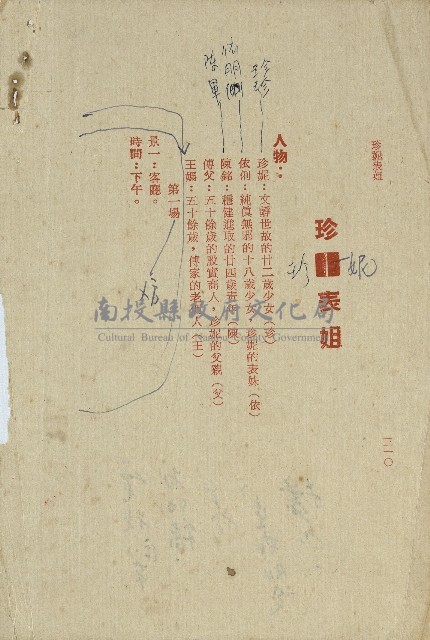 珍妮表姐
三一〇
珍▇表姐
珍 妮
人物：
珍妮：文靜世故的廿二歲少女（珍）
依俐：純真無邪的十八歲少女，珍妮的表妹（依）
陳銘：穩健進取的廿四歲表哥（陳）
傅父：五十餘歲的殷實商人，珍妮的父親（父）
王媽：五十餘歲，傅家的老人（王）
第一場
景一：客廳。
時間：下午。
南投縣政府文化局
Cultural Bureau of Nantou County Government